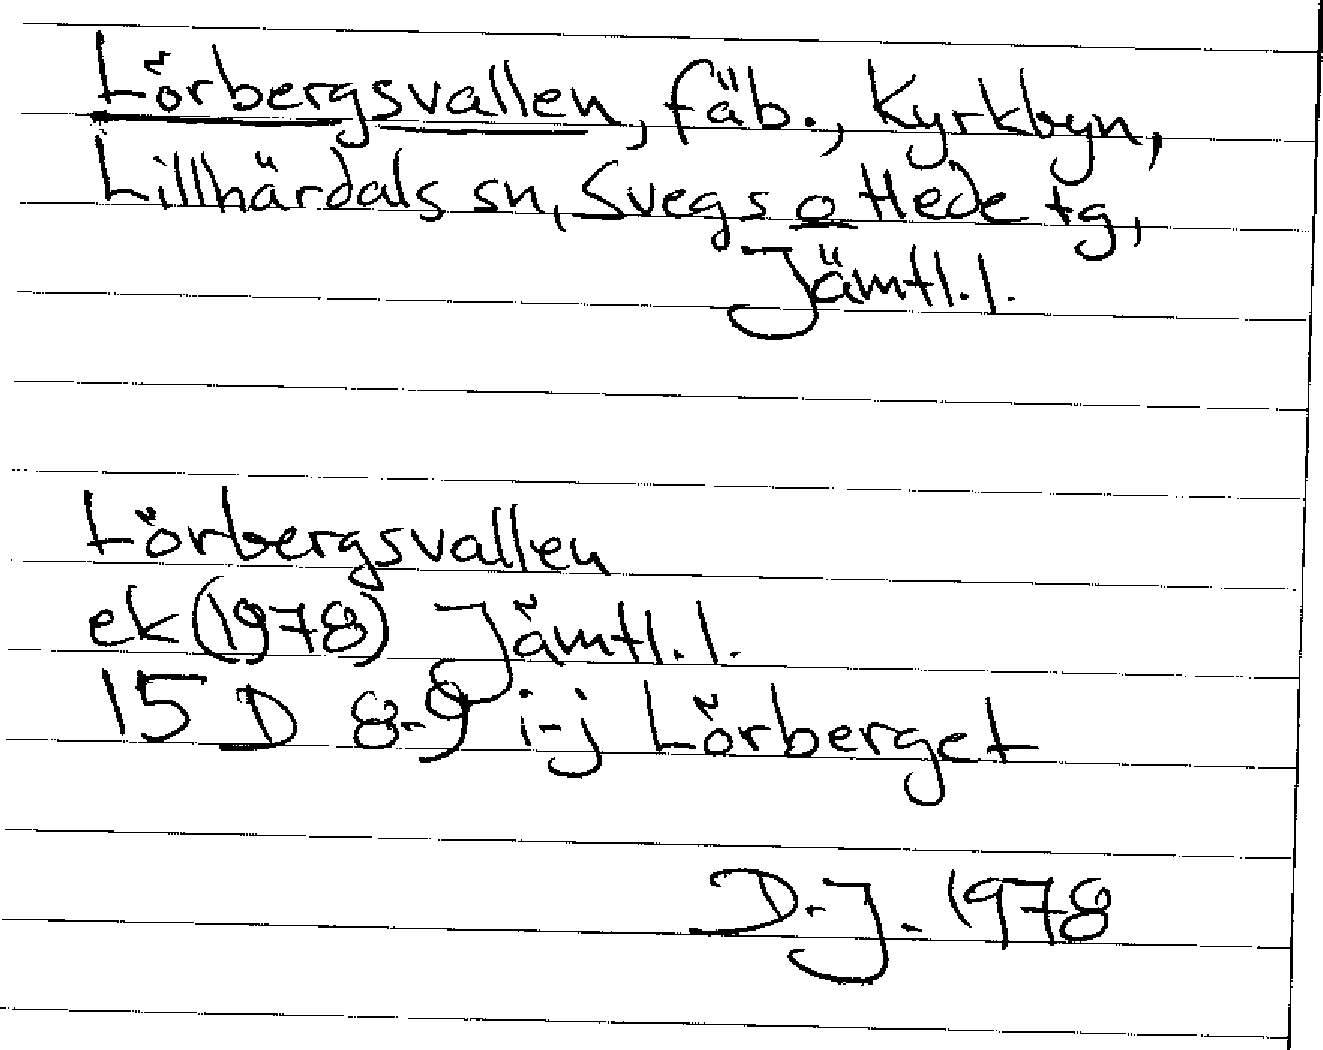 Lörbergsvallen, fäb., Kyrkbyn,
Lillhärdals sn, Svegs o Hede tg,
Jämtl. l.
Lörbergsvallen
ek (1978) Jämtl. l.
15 D 8-9 i-j Lörberget
D.J. 1978